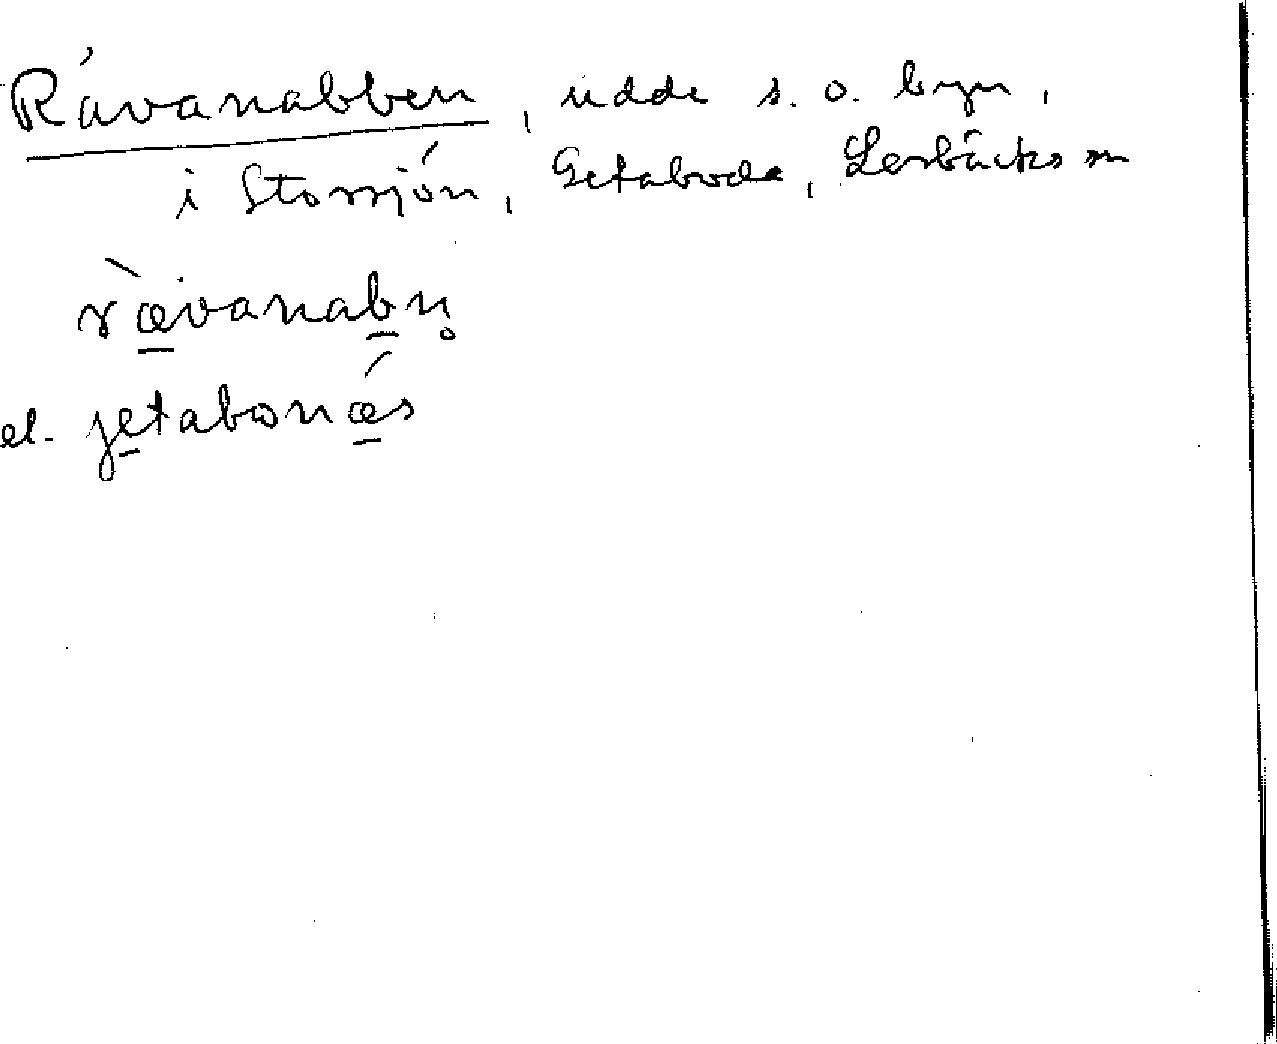 Rävanabben, udde s. o. byn,
i Storsjön, Getaboda, Lerbäcks sn
rævanabn̥
el. jetabonæs